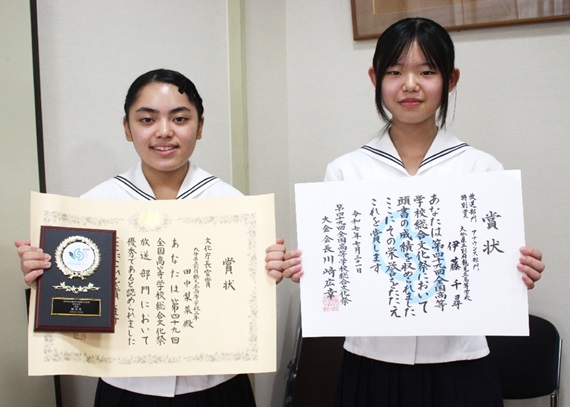 賞状
文化庁長官賞
大分県立別府鶴見丘高等学校
田中梨菜殿
あなたは第四十九回
全国高等学校総合文化祭
放送部門において
優秀であると認められました
賞状
放送部門 アナウンス部門
特別賞 大分県立別府鶴見丘高等学校
伊藤千尋
あなたは第四十九回全国高等
学校総合文化祭において
頭書の成績を収められました
ここにその栄誉をたたえ
これを賞します
令和七年七月三十日
第四十九回全国高等学校総合文化祭
大会会長川崎広幸